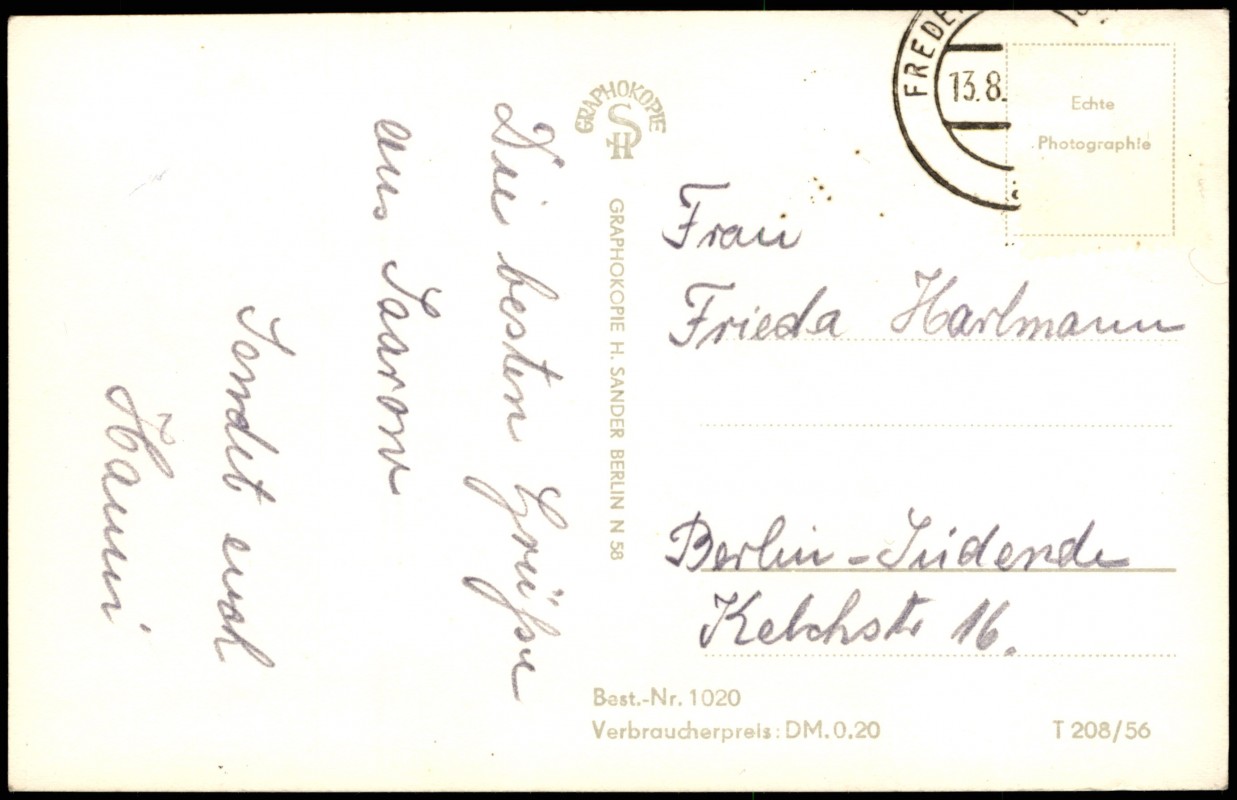 Die besten Grüße
aus Saarow
Sendet euch
Hanni
GRAPHOKOPIE
SH
GRAPHOKOPIE H. SANDER BERLIN N 58
13.8.
Echte
Photographie
Frau
Frieda Hartmann
Berlin-Südende
Kelchstr 16.
Best.-Nr. 1020
Verbraucherpreis: DM. 0.20
T 208/56